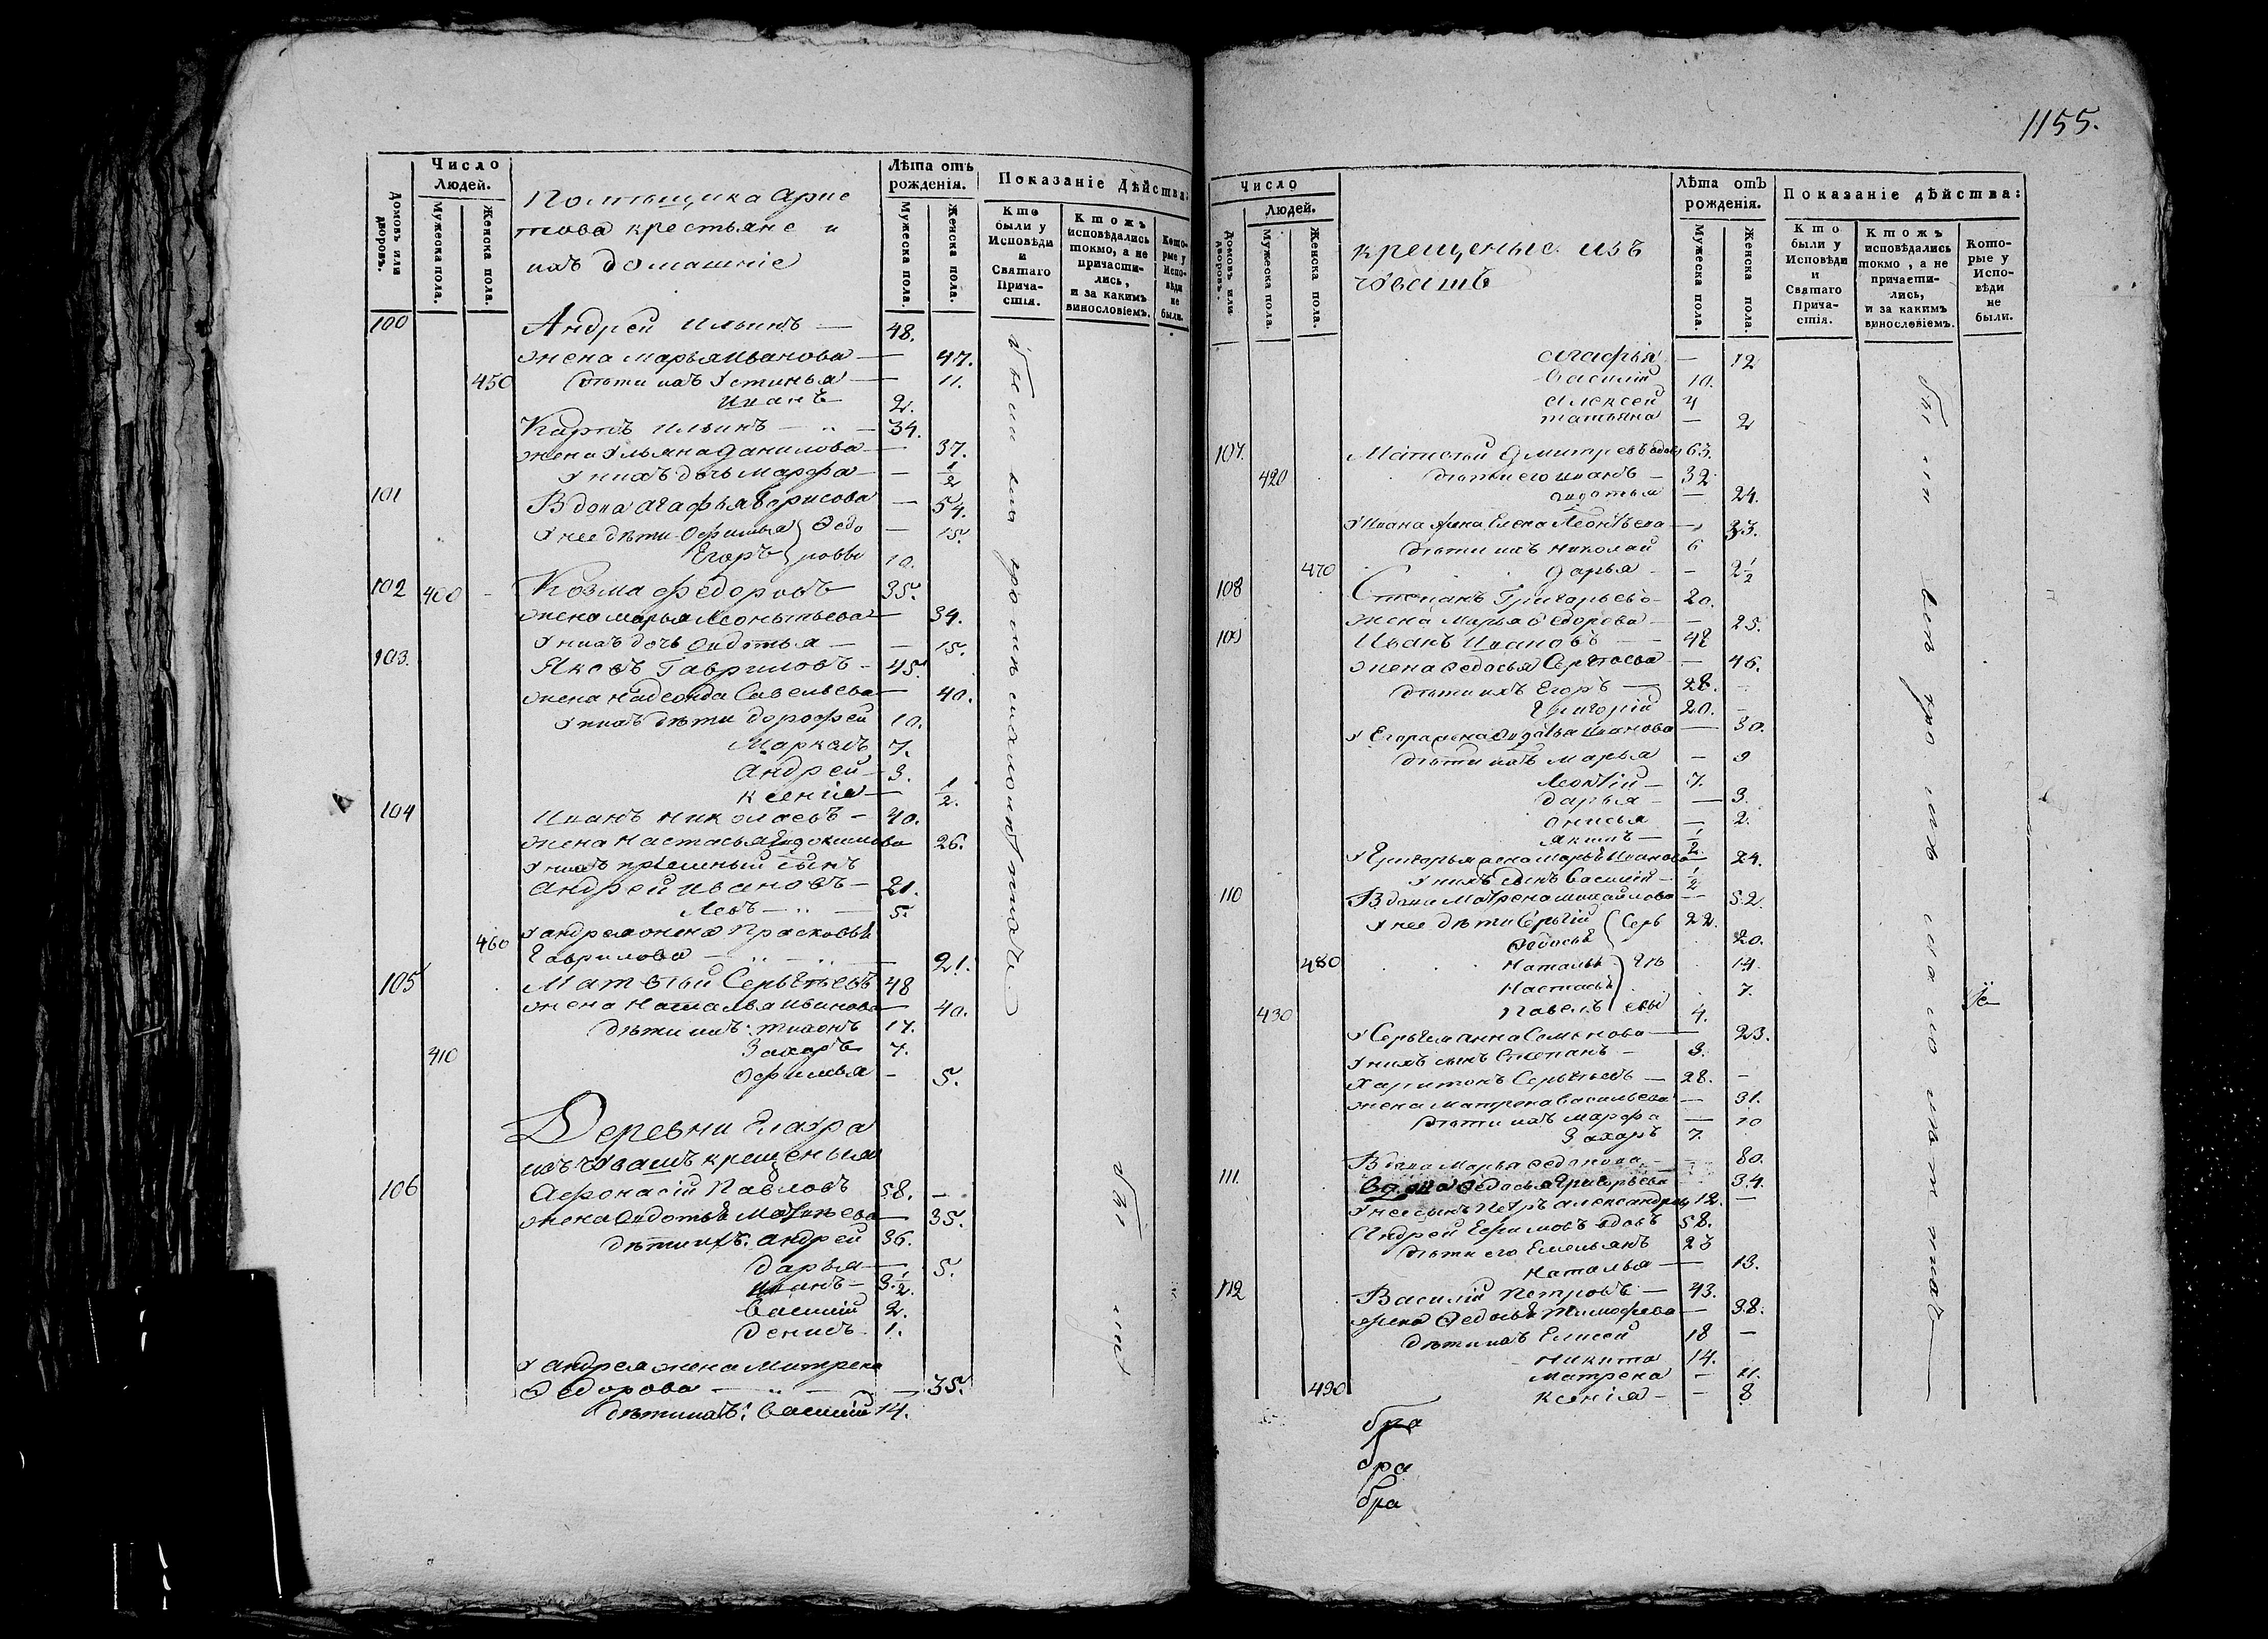 1155.
Число
Людей.
Домовъ или дворовъ.
Мужеска пола.
Женска пола.
Помѣщика Арис
това крестьяне и
ихъ домашніе
Лѣта отъ
рожденія.
Мужеска пола.
Женска пола.
Показаніе Дѣйства:
Кто были у Исповѣди и Святаго Прича- стія.
Ктожъ исповѣдались токмо, а не причасти- лись, и за какимъ винословіемъ.
Кото- рые у Испо- вѣди не были.
100 Андрей Ильинъ — 48.
жена Марья Иванова — 47.
450 дѣти ихъ Устинья — 11.
Иванъ 2.
Карпъ Ильинъ — 34.
жена Ульяна Данилова — 37.
у нихъ дочь Марфа — 1/2
101 Вдова Агафья Борисова — 54.
у нее дѣти Офимья } Ѳедо — 15.
Егоръ } ровы 10.
102 400 Козма Федоровъ 35.
жена Марья Леонтьева — 34.
у нихъ дочь Овдотья — 15.
103. Яковъ Гавриловъ — 45.
жена Надежда Савельева — 40.
у нихъ дѣти Дорофей 10.
Маркелъ 7.
Андрей — 3.
Ксенія — 1/2.
104 Иванъ Николаевъ — 40.
жена Настасья Евдокимова 26.
у нихъ пріемный сынъ
Андрей Ивановъ — 21.
Левъ — 5.
460 у Андрея жена Прасковья
Гаврилова — 21.
105 Матвѣй Сергѣевъ 48
жена Наталья Иванова — 40.
дѣти ихъ: Тихонъ 17.
410 Захаръ 7.
Офимья — 5.
Деревни Елахра
изъ чувашъ крещеныя
106 Афонасій Павловъ 58. —
жена Овдотья Матвѣева — 35.
дѣти ихъ: Андрей 36.
Дарья — 5.
Иванъ — 3 1/2.
Василій 2.
Денисъ 1.
у Андрея жена Матрена
Ѳедорова — 35.
дѣти ихъ: Василій 14.
Число
Людей.
Домовъ или дворовъ.
Мужеска пола.
Женска пола.
крещеные изъ
чувашъ
Лѣта отъ
рожденія.
Мужеска пола.
Женска пола.
Показаніе дѣйства:
Кто были у Исповѣди и Святаго Прича- стія.
Ктожъ исповѣдались токмо, а не причасти- лись, и за какимъ винословіемъ.
Кото- рые у Испо- вѣди не были.
Агафья — 12
Василій 10.
Алексей 4
Татьяна — 2
107. Матвѣй Дмитревъ вдовъ 63.
420 дѣти его Иванъ — 32
Овдотья — 24.
у Ивана жена Елена Леонтьева — 33.
дѣти ихъ Николай 6
470 Дарья — 2 1/2
108 Степанъ Григорьевъ — 20.
жена Марья Ѳедорова — 25.
109 Иванъ Ивановъ — 48
жена Ѳедосья Сергѣева — 46.
дѣти ихъ Егоръ — 28.
Григорій 20.
у Егора жена Овдотья Иванова — 30.
дѣти ихъ Марья — 9
Леонтій — 7.
Дарья — 3.
Анисья — 2.
Якимъ — 1/2.
у Григорья жена Марья Иванова 24.
у нихъ сынъ Василій — 1/2
110 Вдова Матрена Михайлова — 52.
у нее дѣти Сергій } Серг 22.
Ѳедосья 20.
480 Наталья } 14.
Настасья 7.
430 Павелъ } евы 4.
у Сергея Анна Семенова — 23.
у нихъ сынъ Степанъ — 3.
Харитонъ Сергѣевъ — 28. —
жена Матрена Васильева — 31.
дѣти ихъ Марфа — 10
Захаръ 7.
Вдова Марья 80.
111. Вдова Ѳедосья Григорьева 34.
у нее сынъ Петръ Александровъ 12. —
Андрей Ефимовъ вдовъ 58.
дѣти его Емельянъ 23
Наталья — 13.
112 Василій Петровъ — 43.
жена Ѳедосья Тимофеева — 38.
дѣти ихъ Елисей 18 —
Никита 14.
Матрена — 11.
490 Ксенія — 8
бра
бра
бра